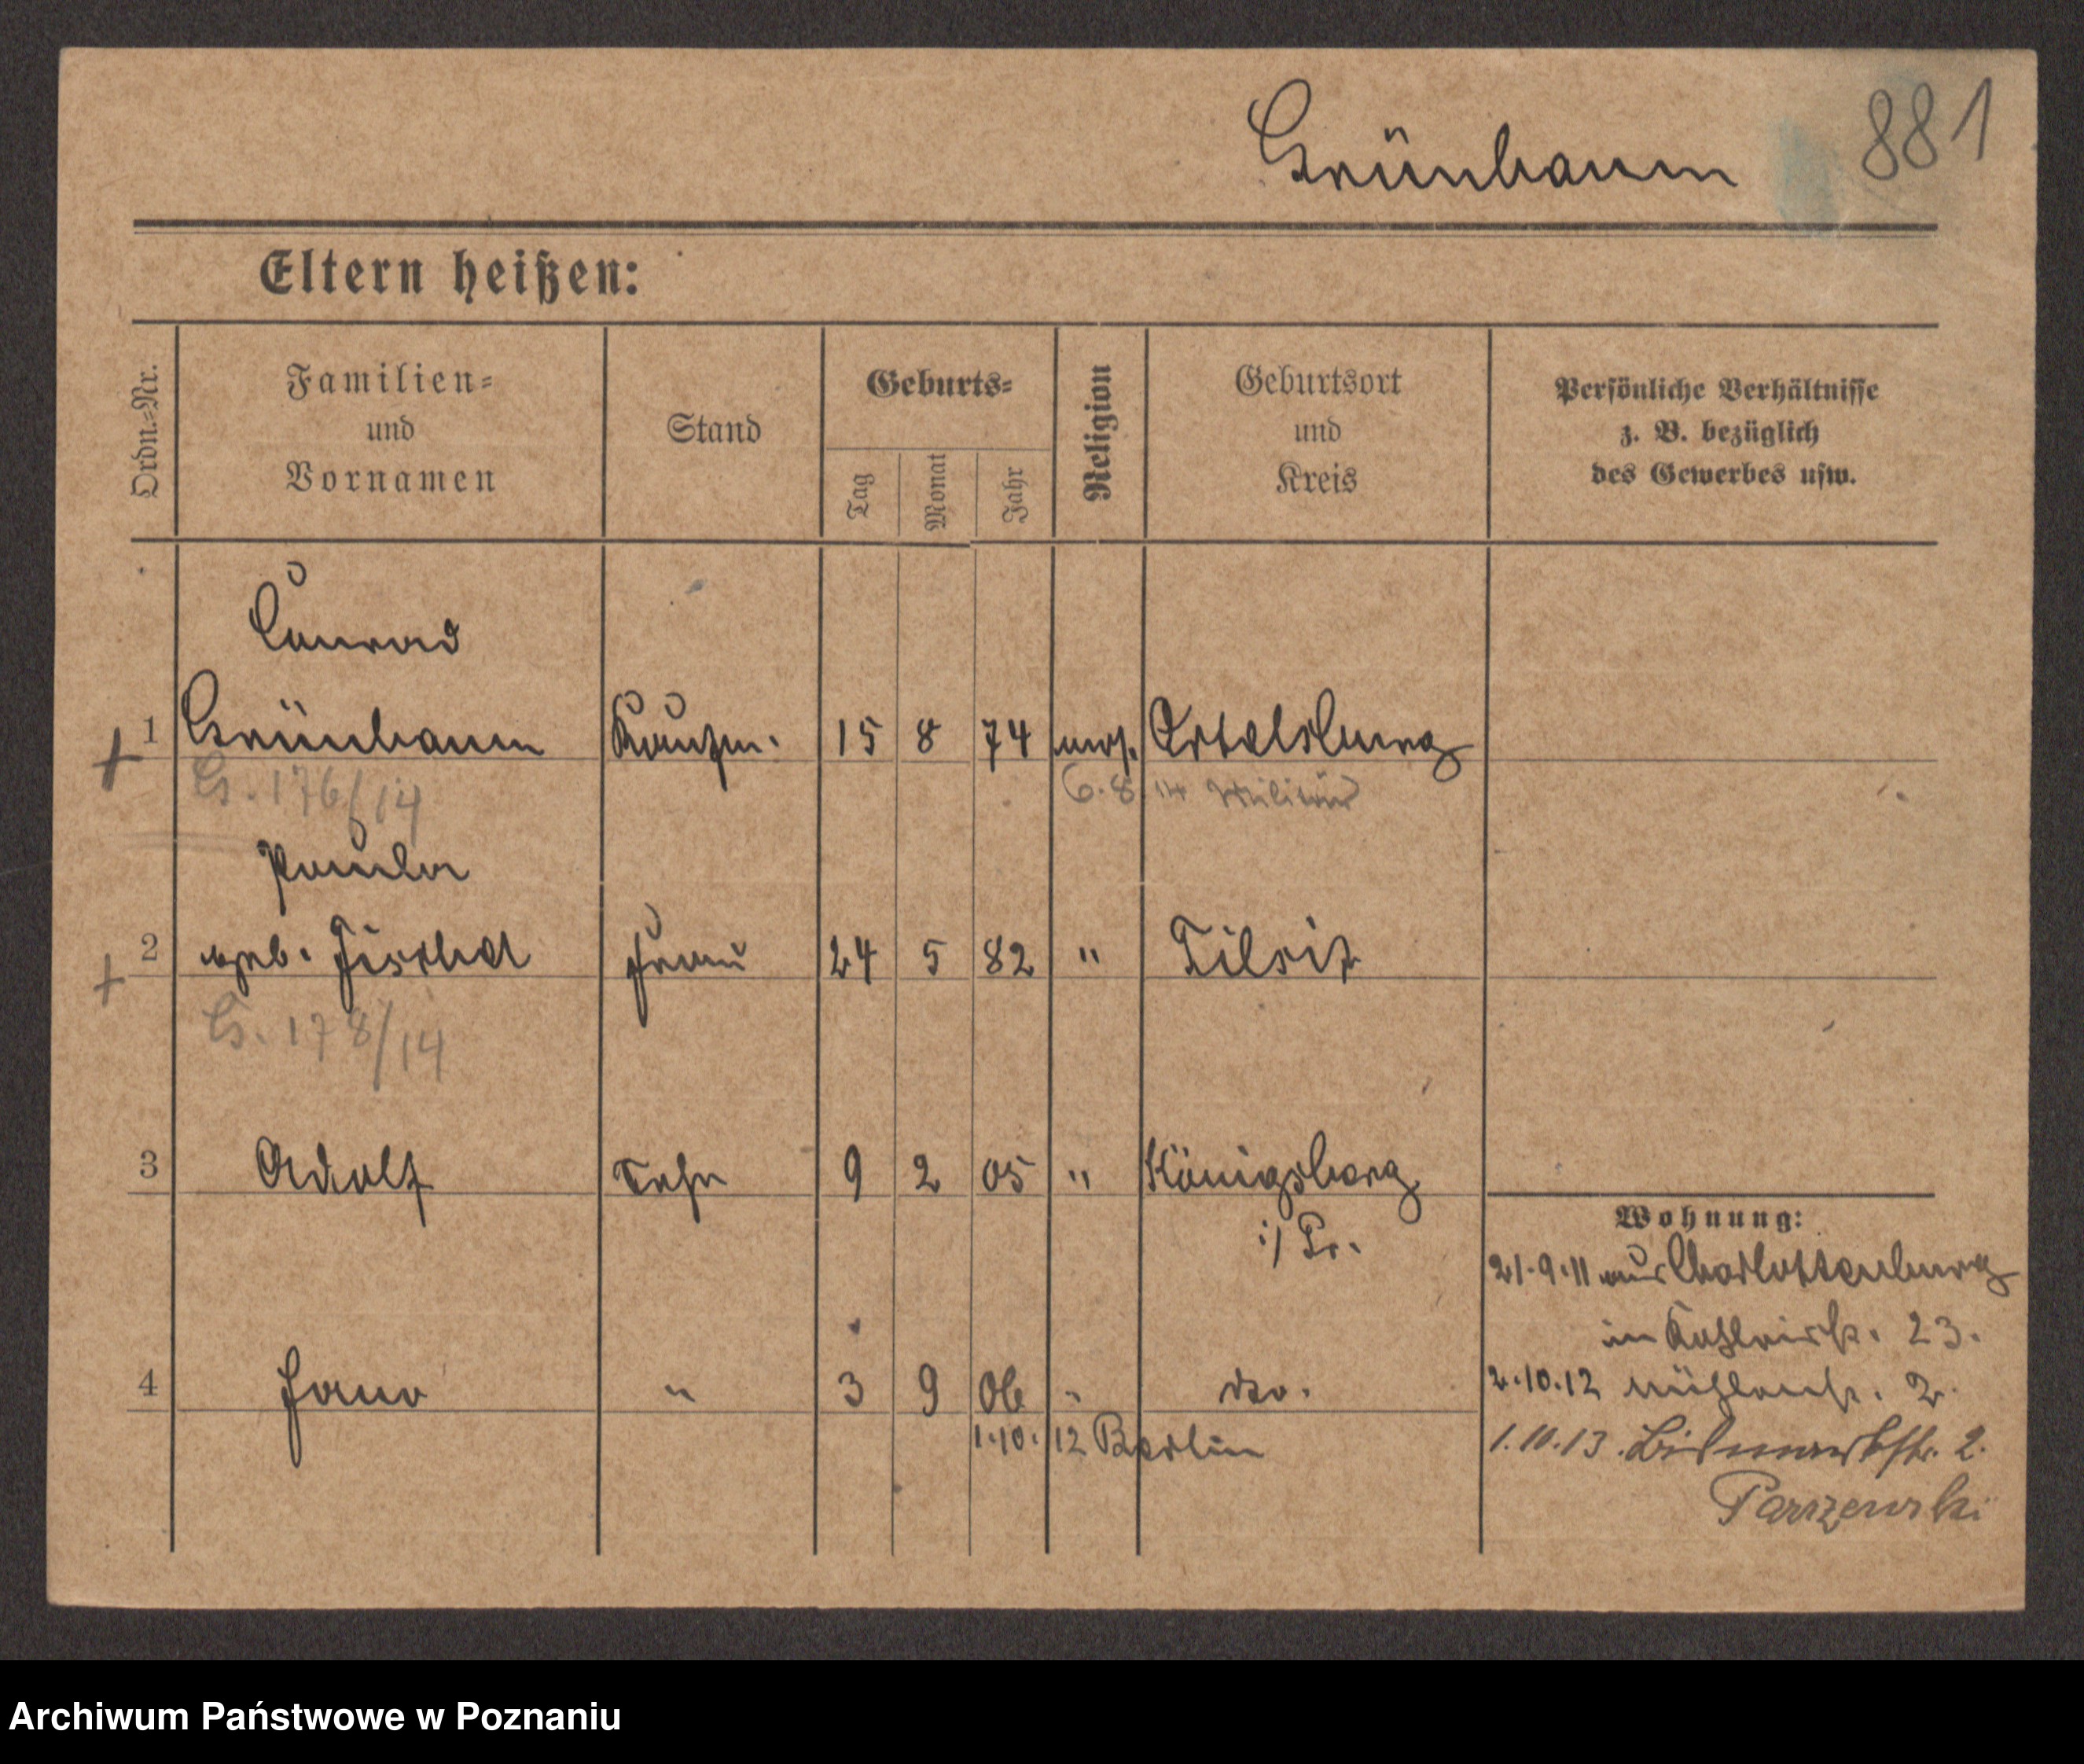 Grünbaum 881
Eltern heißen:
Ordn.-Nr.
Familien-
und
Vornamen
Stand
Geburts-
Tag
Monat
Jahr
Religion
Geburtsort
und
Kreis
Persönliche Verhältnisse
z. B. bezüglich
des Gewerbes usw.
Conrad
1 Grünbaum Kaufm. 15 8 74 mos. Ortelsburg
G. 176/14 6.8.14 Militär
Paula
2 geb. Fischel Frau 24 5 82 " Tilsit
G. 178/14
3 Adolf Sohn 9 2 05 " Königsberg
i/Pr.
Wohnung:
21.9.11 aus Charlottenburg
in 23.
4 " 3 9 06 " dto.
2.10.12 Mühlenstr. 2.
1.10.12 Berlin
1.10.13. Bismarckstr. 2.
Parzewski
Archiwum Państwowe w Poznaniu